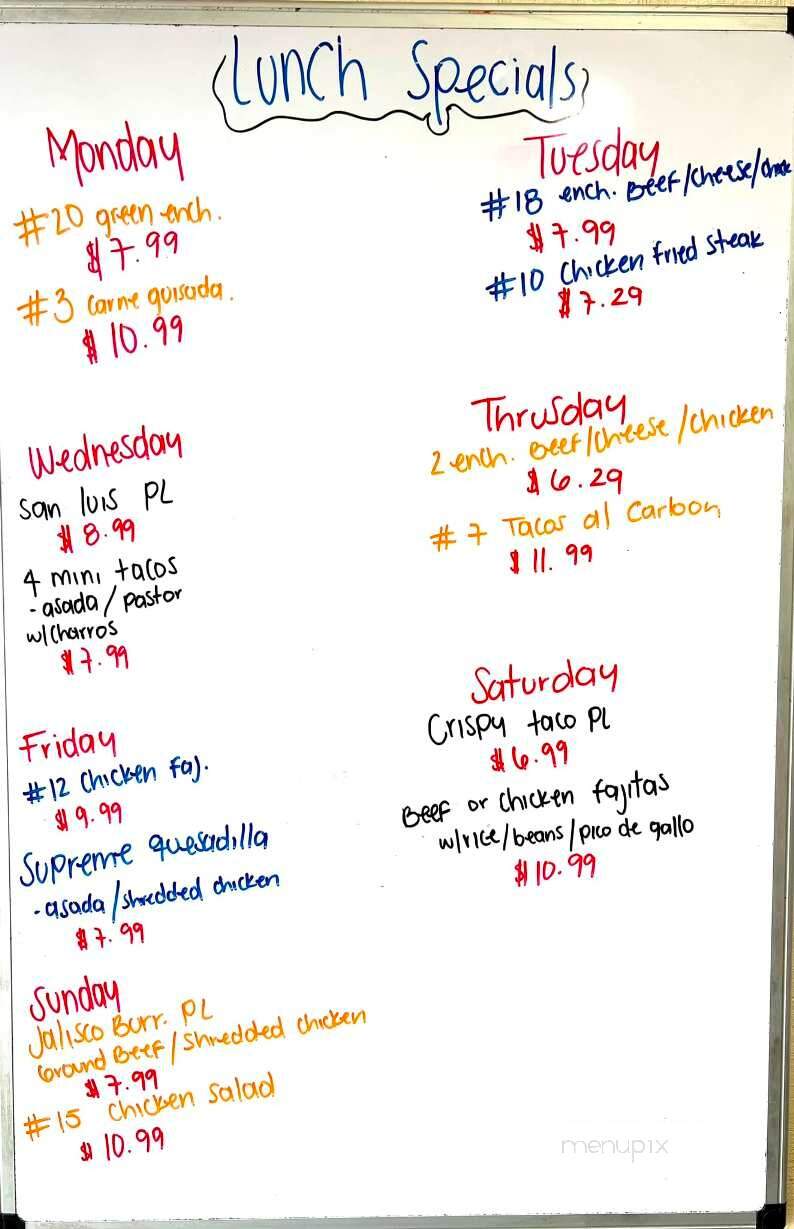 Lunch Specials
Monday
#20 green ench.
$7.99
#3 carne guisada.
$10.99
Tuesday
#18 ench. Beef/cheese/
$7.99
#10 Chicken fried steak
$7.29
Wednesday
San luis PL
$8.99
4 mini tacos
- asada/pastor
w/charros
$7.99
Thrusday
2 ench. Beef/cheese/chicken
$6.29
#7 Tacos al Carbon
$11.99
Friday
#12 Chicken faj.
$9.99
Supreme quesadilla
- asada/shredded chicken
$7.99
Saturday
Crispy taco PL
$6.99
Beef or chicken fajitas
w/rice/beans/pico de gallo
$10.99
Sunday
Jalisco Burr. PL
Ground Beef/Shredded chicken
$7.99
#15 Chicken salad
$10.99
menupix